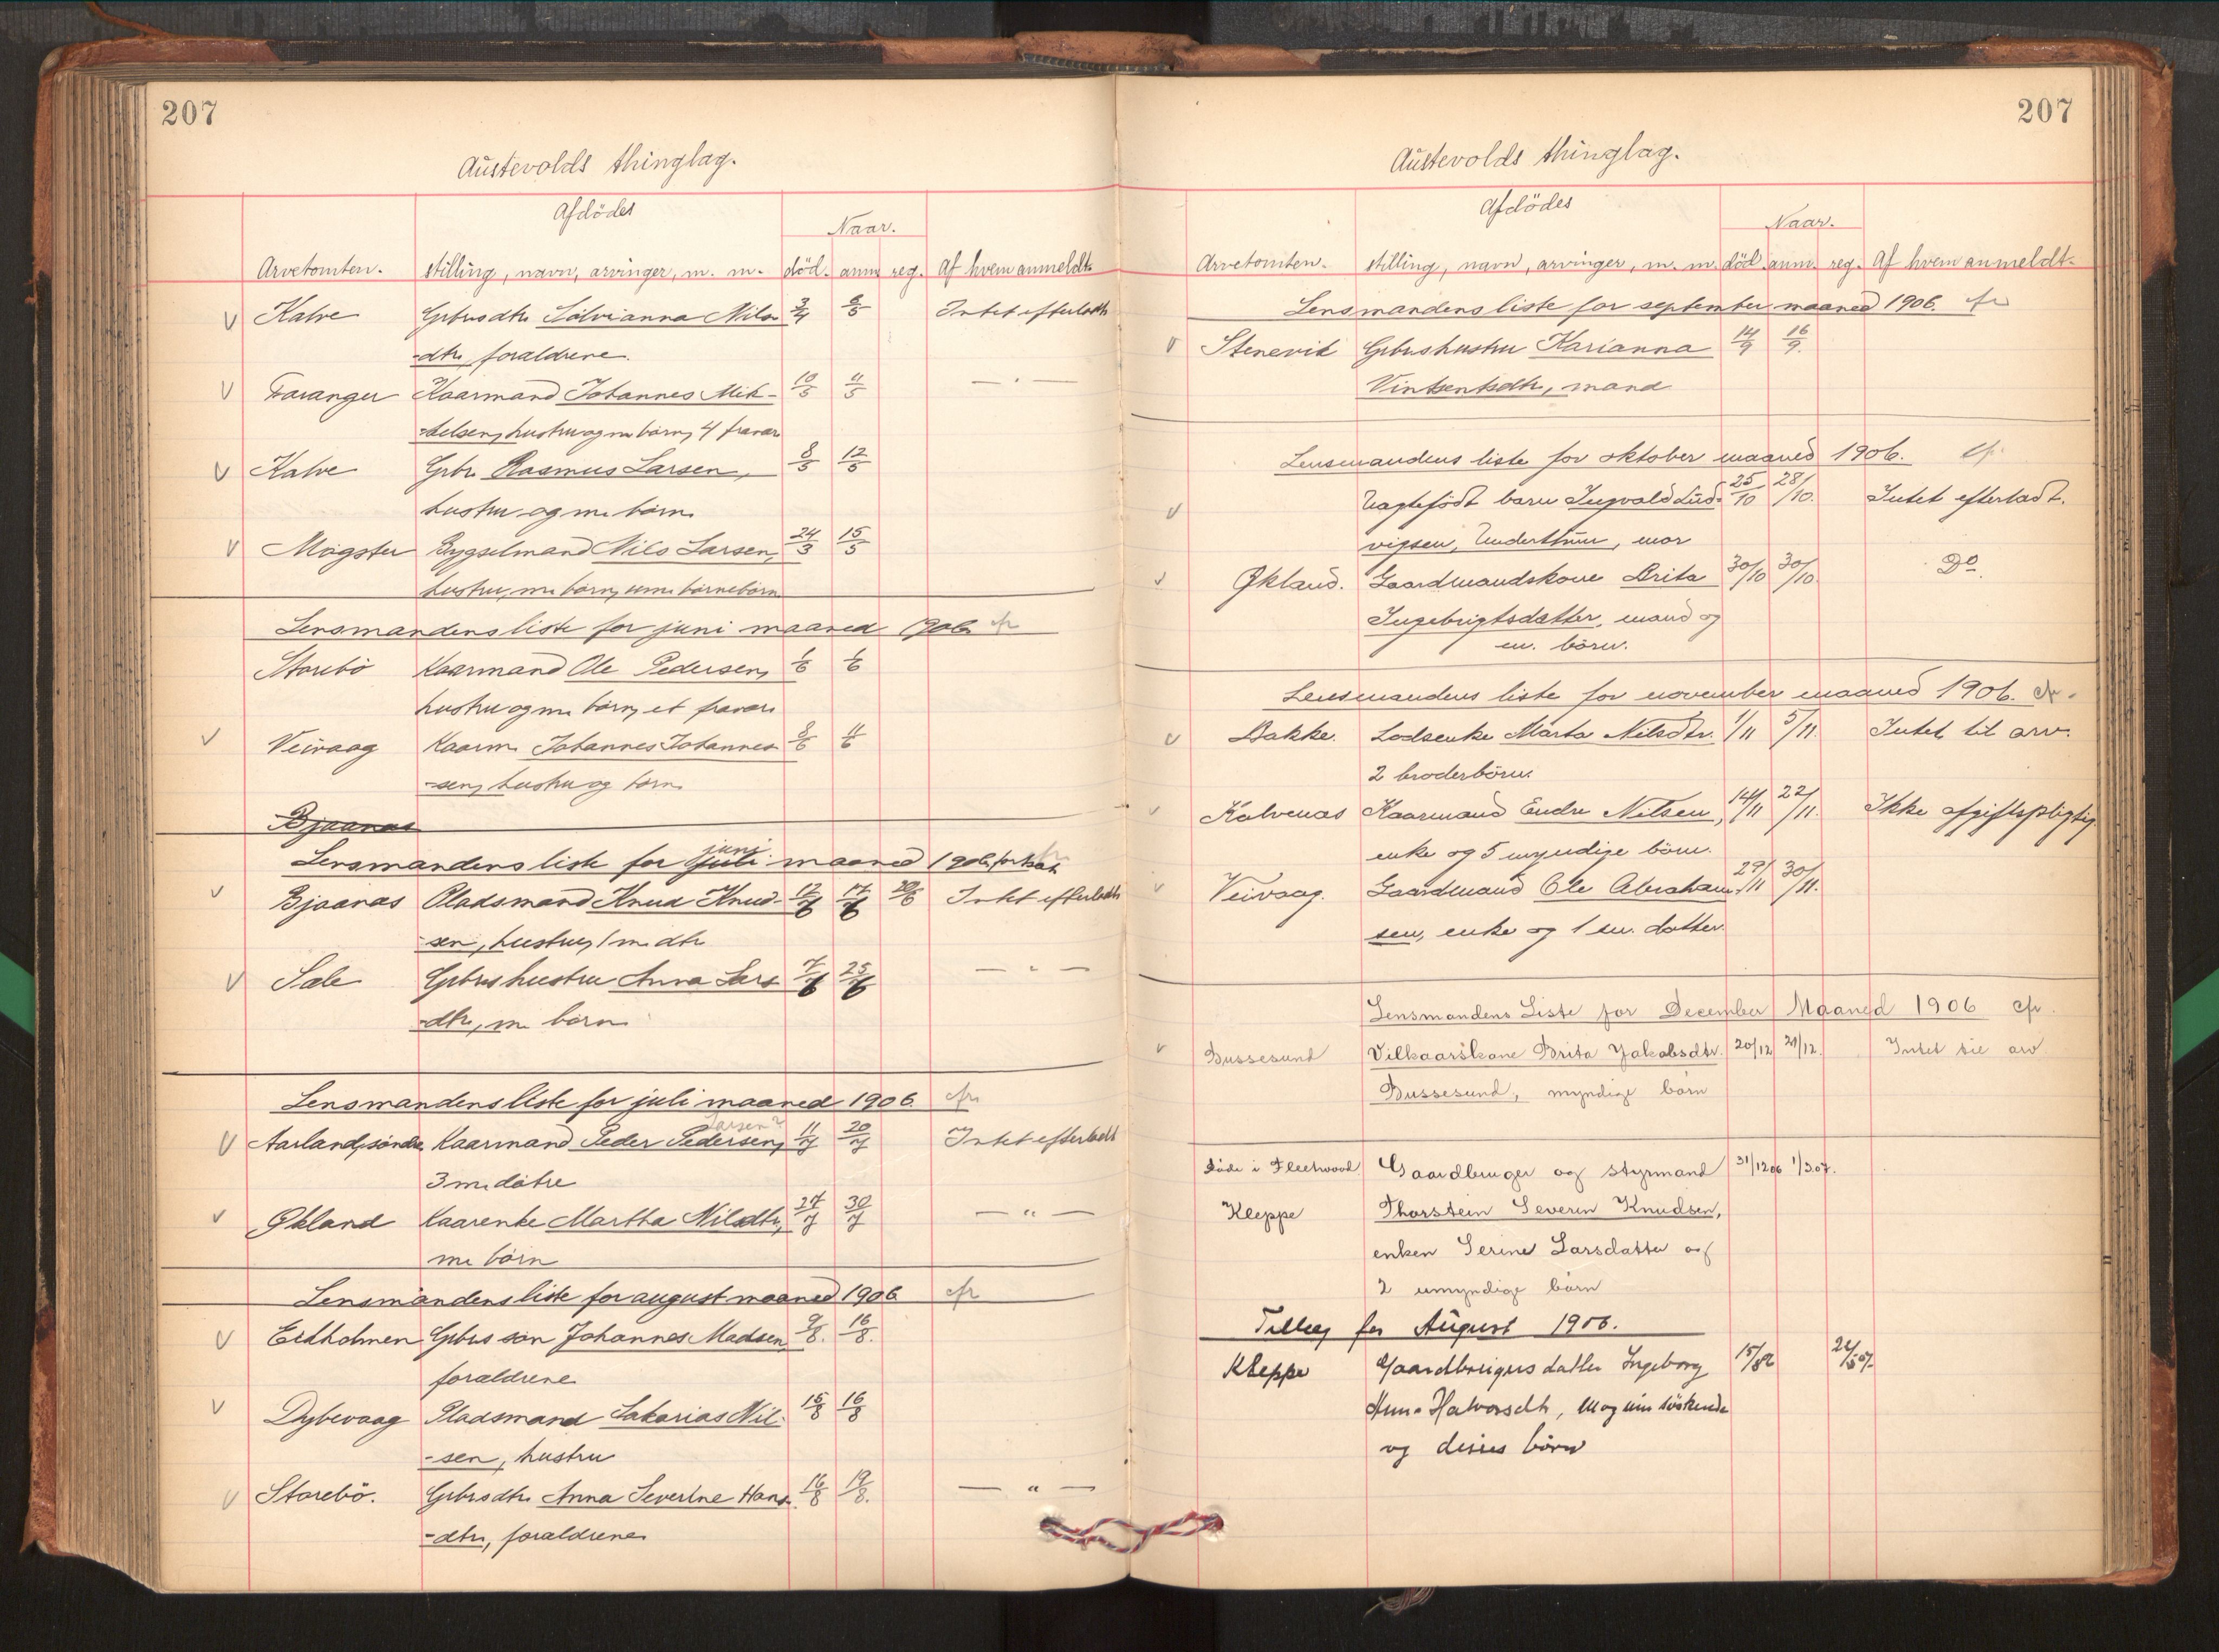 207
Austevolds thinglag.
Afdödes
Naar.
Arvetomten. stilling, navn, arvinger, m. m. död. anm. reg. Af hvem anmeldt.
V Kalve Grbrsdtr. Solvianna Nils- 3/4 6/5 Intet efterladt
-dtr, forældrene.
V Faranger Kaarmand Johannes Mik- 10/5 11/5 — " —
-kelsen, hustru og m. börn, 4 fravær.
V Kalve Grbr. Rasmus Larsen, 8/5 12/5
hustru og m. börn.
V Mögster Bygselmand Nils Larsen, 24/3 15/5
hustru, m. börn, um. börnebörn
Lensmandens liste for juni maaned 1906. cfr
Storebö Kaarmand Ole Pedersen, 1/6 1/6
hustru og m. börn, et fravær.
V Veivaag Kaarm. Johannes Johannes- 8/6 11/6
-sen, hustru og börn.
Bjaanæs
Lensmandens liste for juli juni maaned 1906, fortsat
V Bjaanæs Pladsmand Knud Knud- 12/6 17/6 20/6 Intet efterladt
-sen, hustru, 1 m. dtr
V Sale Grbrs hustru Anna Lars- 7/6 25/6 — " —
-dtr, m. börn.
Lensmandens liste for juli maaned 1906. cfr.
Larsen?
V Aarland, söndre Kaarmand Peder Pedersen, 11/7 20/7 Intet efterladt
3 m. dötre
V Økland Kaarenke Martha Nilsdtr, 27/7 30/7 — " —
m. börn
Lensmandens liste for august maaned 1906 cfr
V Eidholmen Grbrs sön Johannes Madsen, 9/8. 16/8.
forældrene
V Dybevaag Pladsmand Sakarias Nil- 15/8 16/8
-sen, hustru
V Storebö. Grbrsdtr. Anna Severine Hans- 16/8 19/8. — " —
-dtr, forældrene.
207
Austevolds thinglag.
Afdödes
Naar.
Arvetomten. stilling, navn, arvinger, m. m. död. anm. reg. Af hvem anmeldt.
Lensmandens liste for september maaned 1906. cfr
V Stenevik Grbrs hustru Karianna 14/9 16/9.
Vintsentsdtr, mand
Lensmandens liste for oktober maaned 1906. cfr.
V Uægtefödt barn Ingvald Lud- 25/10 28/10. Intet efterladt.
vigsen, Underthun, mor
V Økland. Gaardmandskone Brita 30/10 30/10. Do.
Ingebrigtsdatter, mand og
m. börn.
Lensmandens liste for november maaned 1906. cfr.
V Bakke. Lodsenke Marta Nilsdtr. 1/11 5/11. Intet til arv.
2 broderbörn.
V Kalvenæs Kaarmand Endre Nilsen, 14/11 22/11. Ikke afgiftspligtig.
enke og 5 myndige börn.
V Veivaag. Gaardmand Ole Abraham- 29/11 30/11.
sen, enke og 1 m. datter.
Lensmandens Liste for December Maaned 1906 cfr.
V Bussesund Vilkaarskone Brita Jakobsdtr. 20/12 21/12. Intet til arv
Bussesund, myndige börn
Döde i Fleetwood Gaardbruger og styrmand 31/12 06 1/3 07.
Kleppe Thorstein Severin Knudsen,
enken Serine Larsdatter og
2 umyndige börn
Tillæg for August 1906.
Kleppe Gaardbrugers datter Ingeborg 15/8 06 24/5 07.
Anna Halvorsdtr, M og um söskende
og disses börn